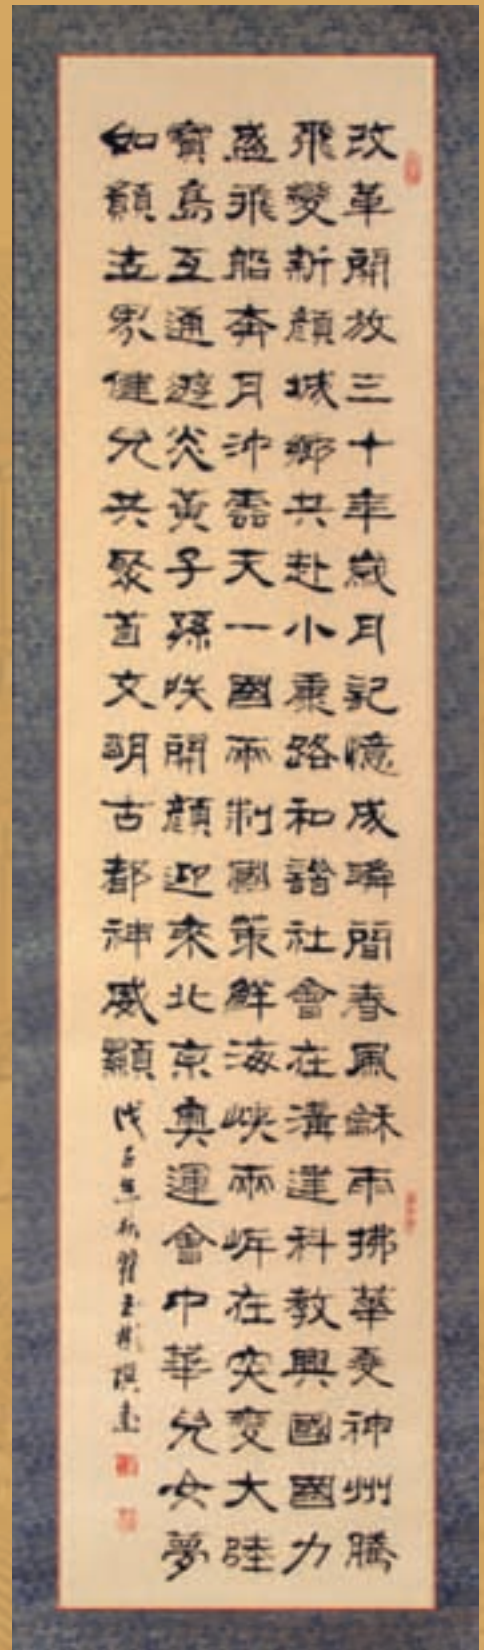 改革開放三十年歲月記憶成瞬間春風穌雨拂華夏神州騰
飛變新顏城鄉共赴小康路和諧社會在溝建科教興國國力
盛飛船奔月沖雲天一國兩制國策鮮海峽兩岸在突變大陸
寶島互通遊炎黃子孫咲開顏迎來北京奧運會中華兒女夢
如願世界健兒共聚首文明古都神威顯 戊子秋翟玉撰書